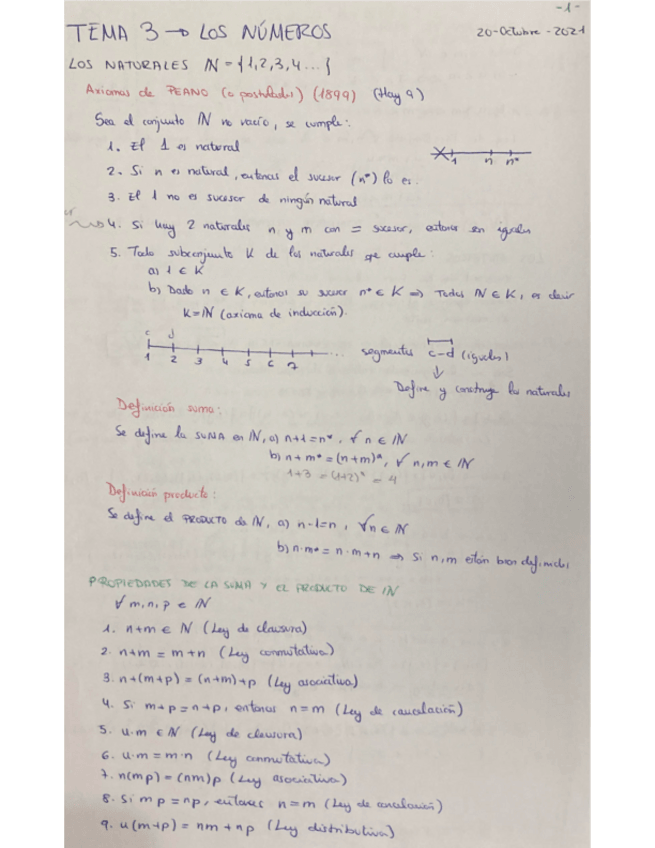 -1-
TEMA 3 → LOS NÚMEROS
20-Octubre-2021
LOS NATURALES ℕ = {1,2,3,4...}
Axiomas de PEANO (o postulados) (1899) (Hay 9)
Sea el conjunto ℕ no vacío, se cumple:
1. El 1 es natural
2. Si n es natural, entonces el sucesor (n*) lo es.
1 n n*
3. El 1 no es sucesor de ningún natural
4. Si hay 2 naturales n y m con = sucesor, entonces son iguales
5. Todo subconjunto K de los naturales que cumple:
a) 1 ∈ K
b) Dado n ∈ K, entonces su sucesor n* ∈ K ⇒ Todos ℕ ∈ K, es decir
K=ℕ (axioma de inducción).
c d
1 2 3 4 5 6 7 ...
segmentos c-d (iguales)
↓
Define y construye los naturales
Definición suma:
Se define la SUMA en ℕ, a) n+1=n*, ∀ n ∈ ℕ
b) n+m* = (n+m)*, ∀ n,m ∈ ℕ
1+3 = (1+2)* = 4
Definición producto:
Se define el PRODUCTO de ℕ, a) n·1=n, ∀n ∈ ℕ
b) n·m* = n·m+n ⇒ Si n,m están bien definidos
PROPIEDADES DE LA SUMA Y EL PRODUCTO DE ℕ
∀ m,n,p ∈ ℕ
1. n+m ∈ ℕ (Ley de clausura)
2. n+m = m+n (Ley conmutativa)
3. n+(m+p) = (n+m)+p (Ley asociativa)
4. Si m+p = n+p, entonces n=m (Ley de cancelación)
5. n·m ∈ ℕ (Ley de clausura)
6. n·m = m·n (Ley conmutativa)
7. n(mp) = (nm)p (Ley asociativa)
8. Si mp = np, entonces n=m (Ley de cancelación)
9. n(m+p) = nm + np (Ley distributiva)